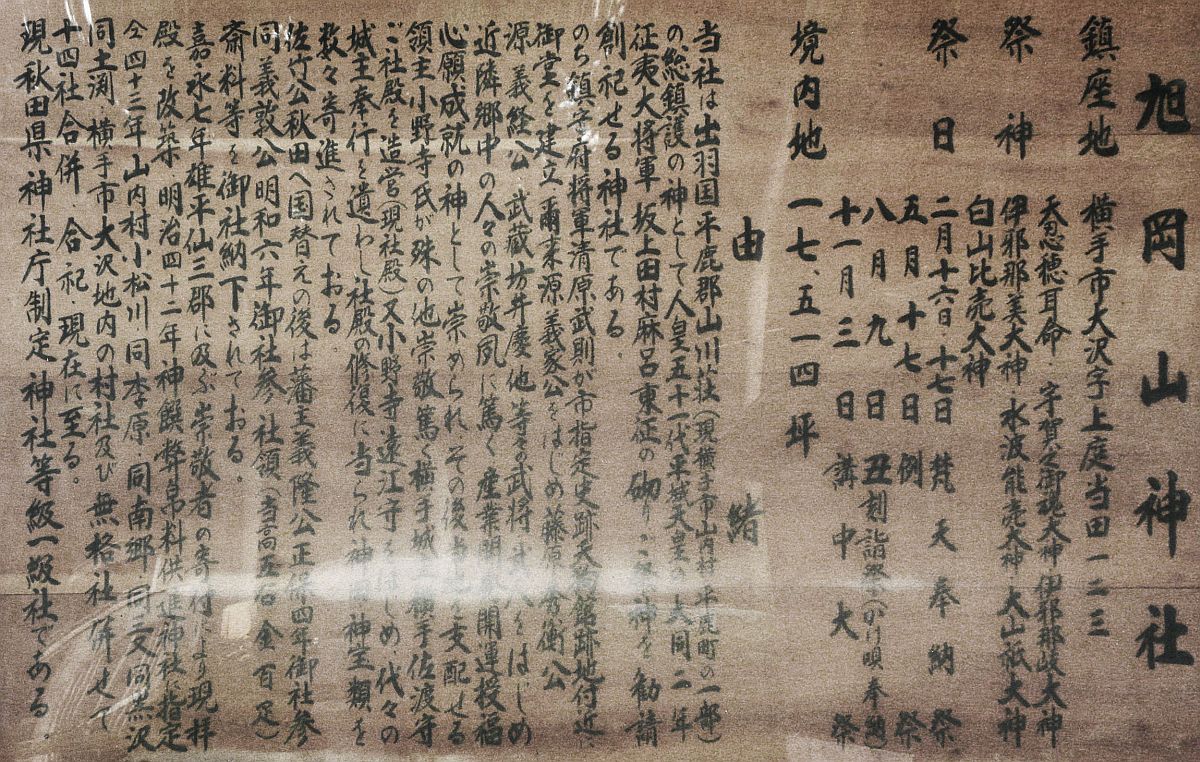 旭岡山神社
鎮座地 横手市大沢字上庭当田一二三
祭神 天忍穂耳命、宇賀之御魂大神 伊邪那岐大神
伊邪那美大神 水波能売大神 大山祇大神
白山比売大神
祭日 二月十六日 十七日 梵天奉納祭
五月十七日 例祭
八月九日 丑刻詣祭(かけ唄奉納)
十一月三日 講中大祭
境内地 一七、五一四坪
由緒
当社は出羽国平鹿郡山川荘(現横手市山内村平鹿町の一部)
の総鎮護の神として人皇五十一代平城天皇の大同二年
征夷大将軍坂上田村麻呂東征の砌り 神を勧請
創祀せる神社である。
のち鎮守府将軍清原武則が市指定史跡大鳥館跡地付近に
御堂を建立爾来源義家公をはじめ藤原秀衡公
源義経公 武蔵坊弁慶他等々武将 をはじめ
近隣郷中の人々の崇敬夙に篤く産業開 開運授福
心願成就の神として崇められ その後 を支配せる
領主小野寺氏が殊の他崇敬篤く横手城 横手佐渡守
ご社殿を造営(現社殿)又小野寺遠江守をはじめ、代々の
城主奉行を遣わし社殿の修復に当られ神 神宝類を
数々寄進されておる。
佐竹公秋田へ国替えの後は藩主義隆公正保四年御社参
同義敦公明和六年御社参 社領(当高五石 金百疋)
斎料等を御社納下されておる。
嘉永七年雄平仙三郡に及ぶ崇敬者の寄付により現拝
殿を改築 明治四十二年神饌幣帛料供進神社指定
仝四十三年山内村小松川、同李原、同南郷、同三又同黒沢
同土渕、横手市大沢地内の村社及び無格社併せて
十四社合併、合祀、現在に至る。
現秋田県神社庁制定神社等級一級社である。